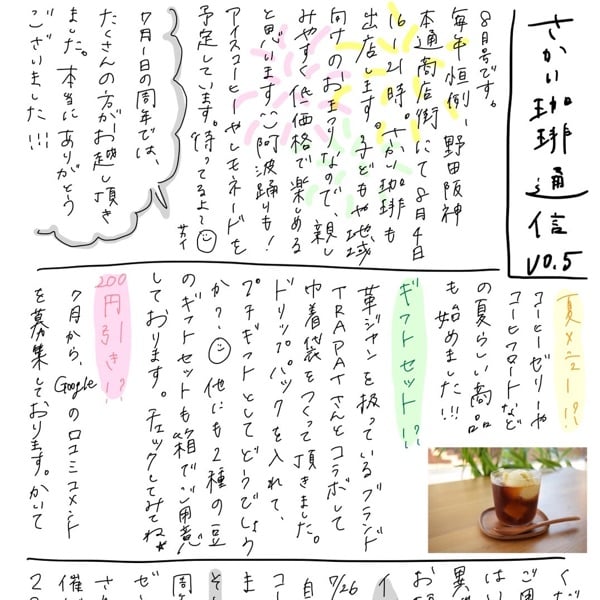 さかい珈琲通信 v0.5
8月号です。
毎年恒例、野田阪神
本通商店街にて8月4日
16-21時。さかい珈琲も
出店します。子どもや地域
向けのおまつりなので、親し
みやすく低価格で楽しめる
と思います(^^)阿波踊りも!
アイスコーヒーやレモネードを
予定しています。待ってるよ〜
サカイ
7月1日の周年では、
たくさんの方がお越し頂き
ました。本当にありがとう
ございました!!!
夏メニュー!?
コーヒーゼリーや
コーヒーフロートなど
の夏らしい商品
も始めました!!!
ギフトセット!?
革ジャンを扱っているブランド
TRAPATさんとコラボして
巾着袋をつくって頂きました。
ドリップパックを入れて、
プチギフトとしてどうでしょう
か? 他にも2種の豆
のギフトセットも箱でご用意
しております。チェックしてみてね★
200円引き!?
7月から、Googleの口コミコメント
を募集しております。かいて
くだ
ご用
はい
異
お
イ
7/26
自
コー
ま
周年
ゼー
さ
催